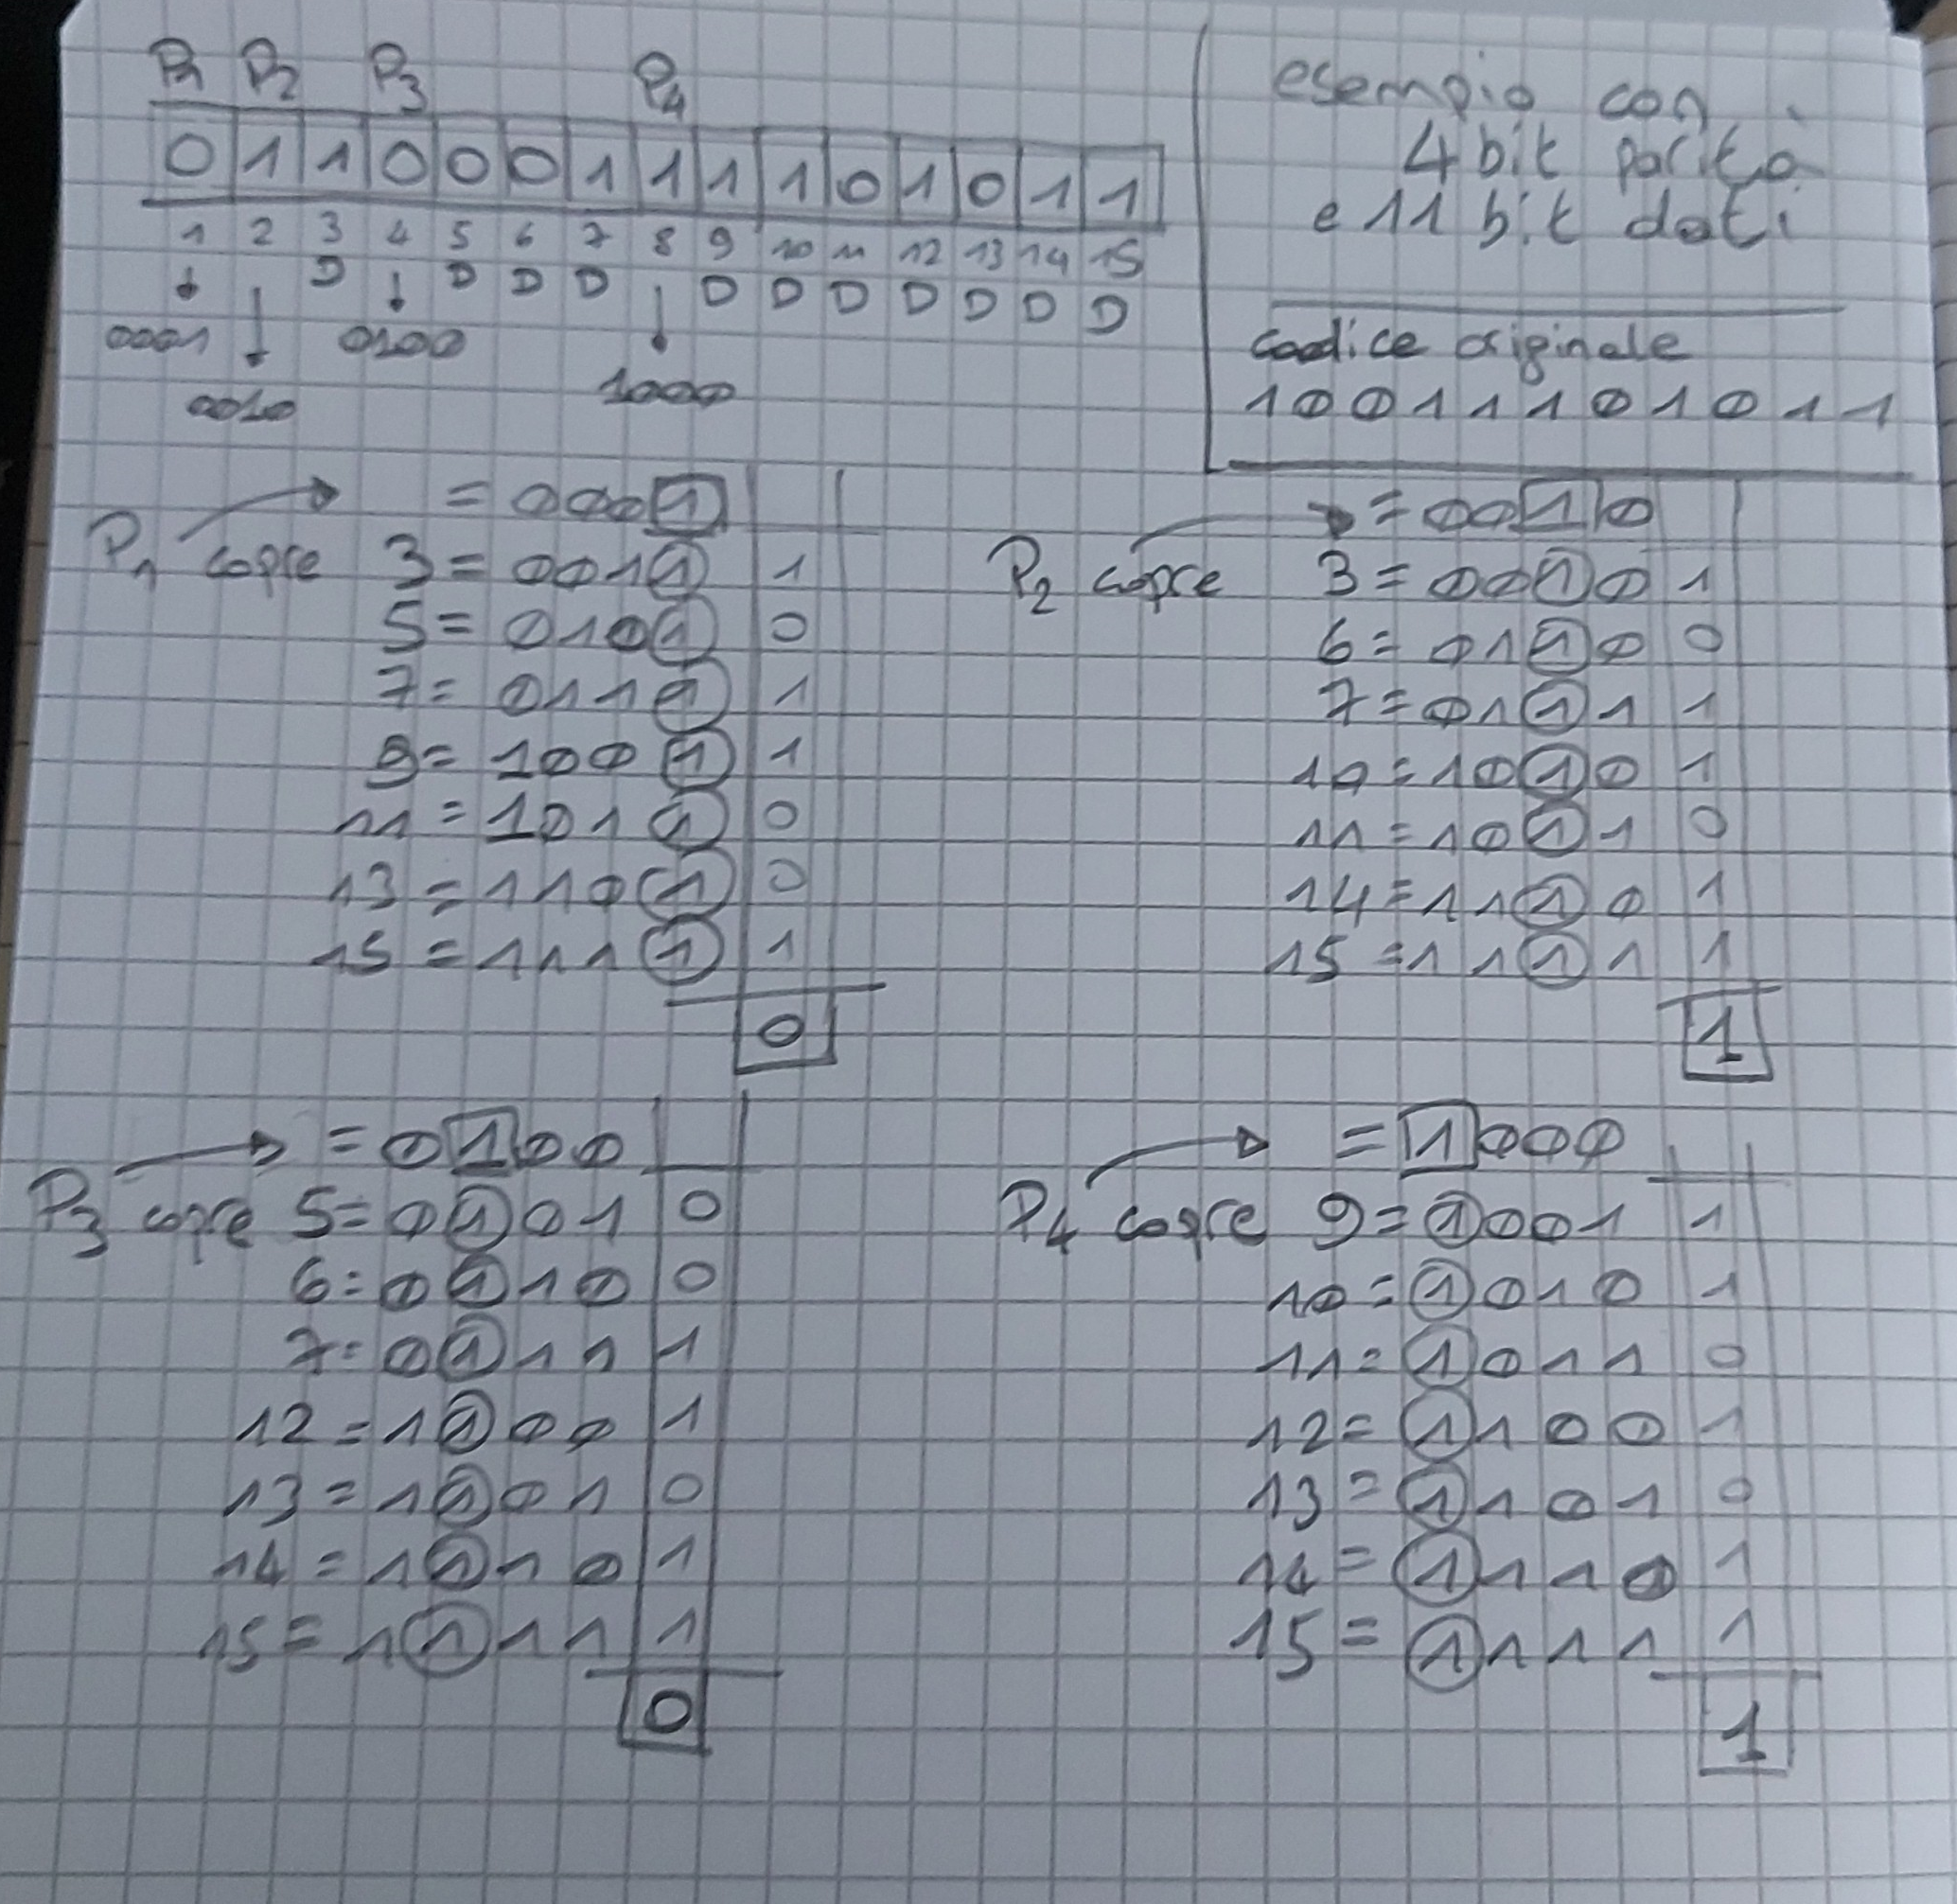 P1 P2 P3 P4
0 1 1 0 0 0 1 1 1 1 0 1 0 1 1
1 2 3 4 5 6 7 8 9 10 11 12 13 14 15
D D D D D D D D D D D
0001 0100
0010 1000
esempio con
4 bit parità
e 11 bit dati
codice originale
1 0 0 1 1 1 0 1 0 1 1
= 0001
P1 copre 3 = 0011 1
5 = 0101 0
7 = 0111 1
9 = 1001 1
11 = 1011 0
13 = 1101 0
15 = 1111 1
0
= 0010
P2 copre 3 = 0010 1
6 = 0110 0
7 = 0111 1
10 = 1010 1
11 = 1011 0
14 = 1110 1
15 = 1111 1
1
= 0100
P3 copre 5 = 0101 0
6 = 0110 0
7 = 0111 1
12 = 1100 1
13 = 1101 0
14 = 1110 1
15 = 1111 1
0
= 1000
P4 copre 9 = 1001 1
10 = 1010 1
11 = 1011 0
12 = 1100 1
13 = 1101 0
14 = 1110 1
15 = 1111 1
1